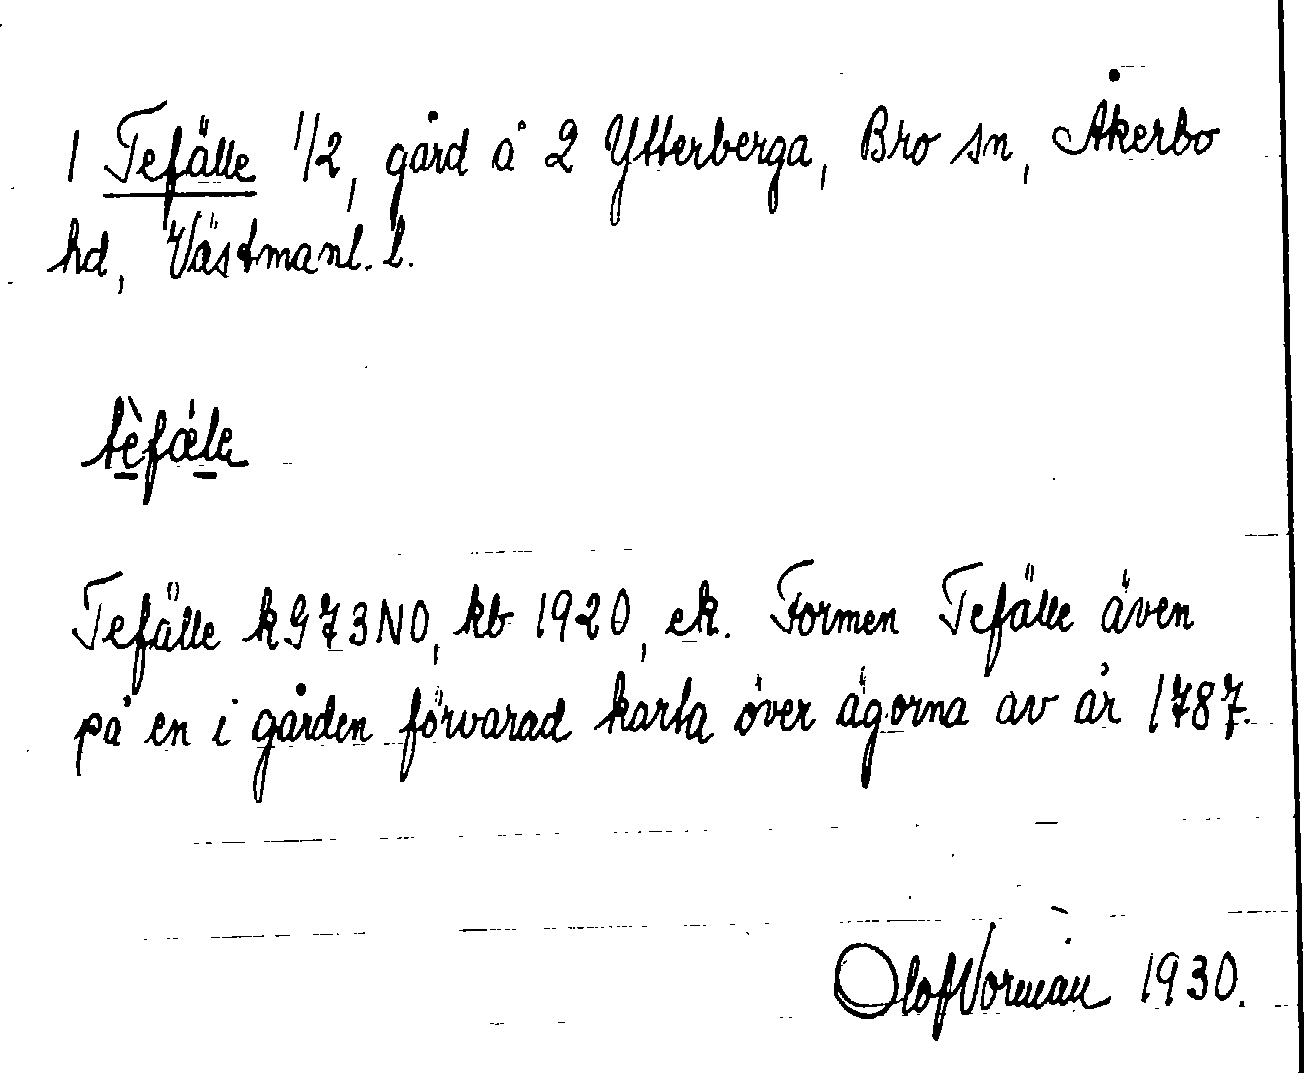 1 Tefälle 1/2, gård å 2 Ytterberga, Bro sn, Åkerbo
hd, Västmanl. l.
tèfæ̀la
Tefälle k973NO, kb 1920, ek. Formen Tefälle även
på en i gården förvarad karta över ägorna av år 1787.
Olof Norman 1930.